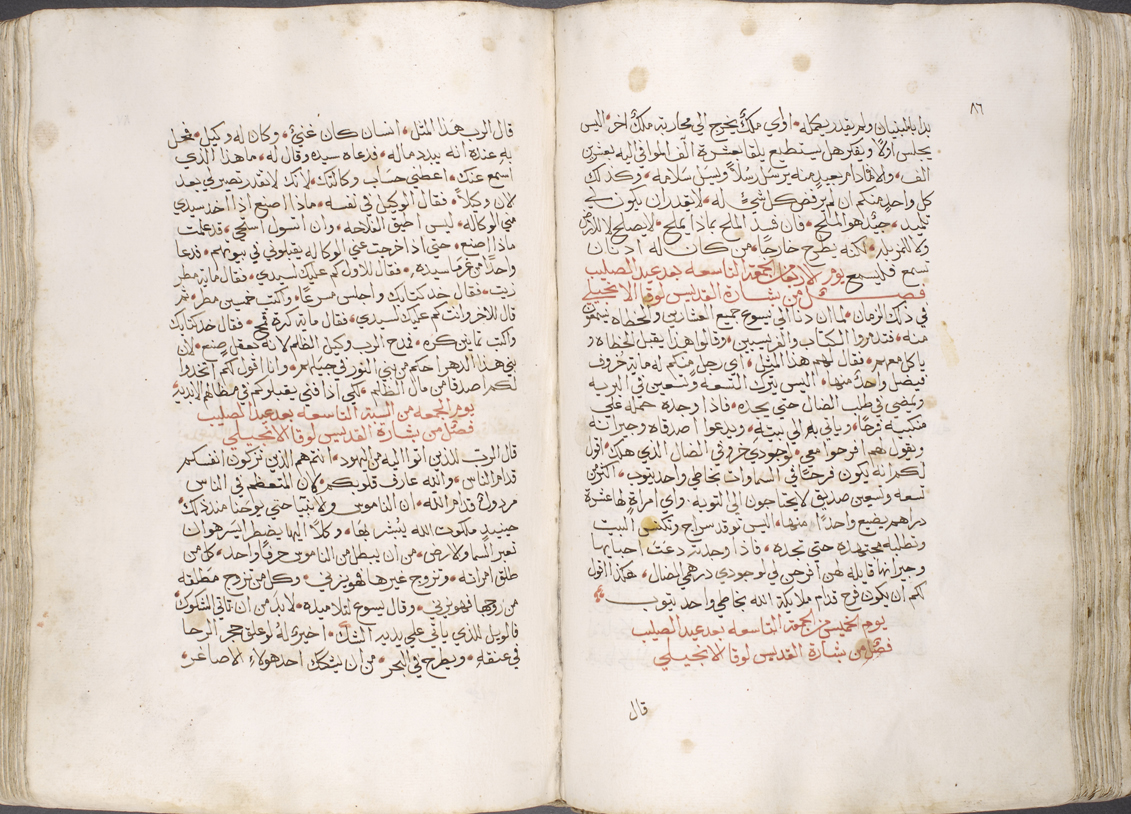 ٨٦
بدا بالبنيان ولم يقدر يكمله • او اي ملك يخرج الى محاربة ملك اخر • اليس
يجلس اولاً ويفكر هل يستطيع يلقا بعشرة الف الموافي اليه بعشرين
الف • والا فما دام بعيد منه يرسل رسلاً ويلتمس سلامه • وكذلك
كل واحد منكم ان لم يرفض كل شي له • لا يقدر ان يكون لي
تلميد • جيد هو الملح • فان فسد الملح بماذا يملح • لا يصلح لا للارض
ولا للمزبله • لكنه يطرح خارجًا • من كان له اذنان
تسمع فليسمع يوم الاربعا من الجمعه التاسعه بعد عيد الصليب
فصل من بشارة القديس لوقا الانجيلي
في ذلك الزمان • لما ان دنا الى يسوع جميع العشارين والخطاه يسمعون
منه • فتدمروا الكتاب والفريسيين • وقالوا هذا يقبل الخطاه و
ياكل معهم • فقال لهم هذا المثل • اي رجل منكم له مايه خروف
فيضل واحد منها • اليس يترك التسعه وتسعين في البريه
ويمضي في طلب الضال حتى يجده • فاذا وجده حمله على
منكبيه فرحًا • وياتي به الى بيته • ويدعوا اصدقاه وجيرانه
ويقول لهم افرحوا معي • لوجودي خروفي الضال الذي هلك • اقول
لكم انه يكون فرحًا في السماوات بخاطي واحد يتوب • اكثر من
تسعه وتسعين صديق لا يحتاجون الى التوبه • واي امراة لها عشرة
دراهم يضيع واحدًا منها • اليس توقد سراج وتكنس البيت
وتطلبه مجتهده حتى تجده • فاذا وجدته دعت احبابها
وجيرانها قايله لهن افرحن لي لوجودي درهمي الضال • هكذا اقول
لكم ان يكون فرح قدام ملايكة الله بخاطي واحد يتوب
يوم الخميس من الجمعه التاسعه بعد عيد الصليب
فصل من بشارة القديس لوقا الانجيلي
قال
قال الرب هذا المثل • انسان كان غني • وكان له وكيل • فمحل
به عنده انه يبدد ماله • فدعاه سيده وقال له • ما هذا الذي
اسمع عنك • اعطني حساب وكالتك • لانك لا تقدر تصير لي بعد
لان وكلاً • فقال الوكيل في نفسه • ماذا اصنع اذا اخد سيدي
مني الوكاله • ليس اطيق الفلاحه • وان اتسول استحي • قد علمت
ماذا اصنع • حتى اذا خرجت عن الوكاله يقبلوني في بيوتهم • فدعا
واحدًا من غرما سيده • فقال للاول كم عليك لسيدي • فقال مايه مطر
زيت • فقال خد كتابك واجلس مسرعًا • واكتب خمسين مطر • ثم
قال للاخر وانت كم عليك لسيدي • فقال مايه كرة قمح • فقال خد كتابك
واكتب تمانين كره • فمدح الرب وكيل الظلم لانه بعقل صنع • لان
بني هذا الدهر احكم من بني النور في جيلهم • وانا اقول لكم اتخدوا
لكم اصدقا من مال الظلم • لكي اذا فني يقبلوكم في مظالهم الابديه
يوم الجمعه من السبه التاسعه بعد عيد الصليب
فصل من بشارة القديس لوقا الانجيلي
قال الرب للذين اتوا اليه من اليهود • انتم هم الدين تزكون انفسكم
قدام الناس • والله عارف قلوبكم • لان المتعظم في الناس
مردول قدام الله • ان الناموس والانبيا حتى يوحنا منذ ذلك
حينيد ملكوت الله يبشر بها • وكلاً اليها يضطر • ايسر هو ان
تعبر السما والارض • من ان يبطل من الناموس حرفًا واحد • كل من
طلق امراته • وتزوج غيرها فهو يزني • وكل من تزوج مطلقه
من زوجها فهو يزني • وقال يسوع لتلاميده • لابد من ان تاتي الشكوك
فالويل للذي ياتي على يديه الشك • اخير له لو علق حجر الرحا
في عنقه • ويطرح في البحر • من ان يشكك احد هولاء الاصاغر